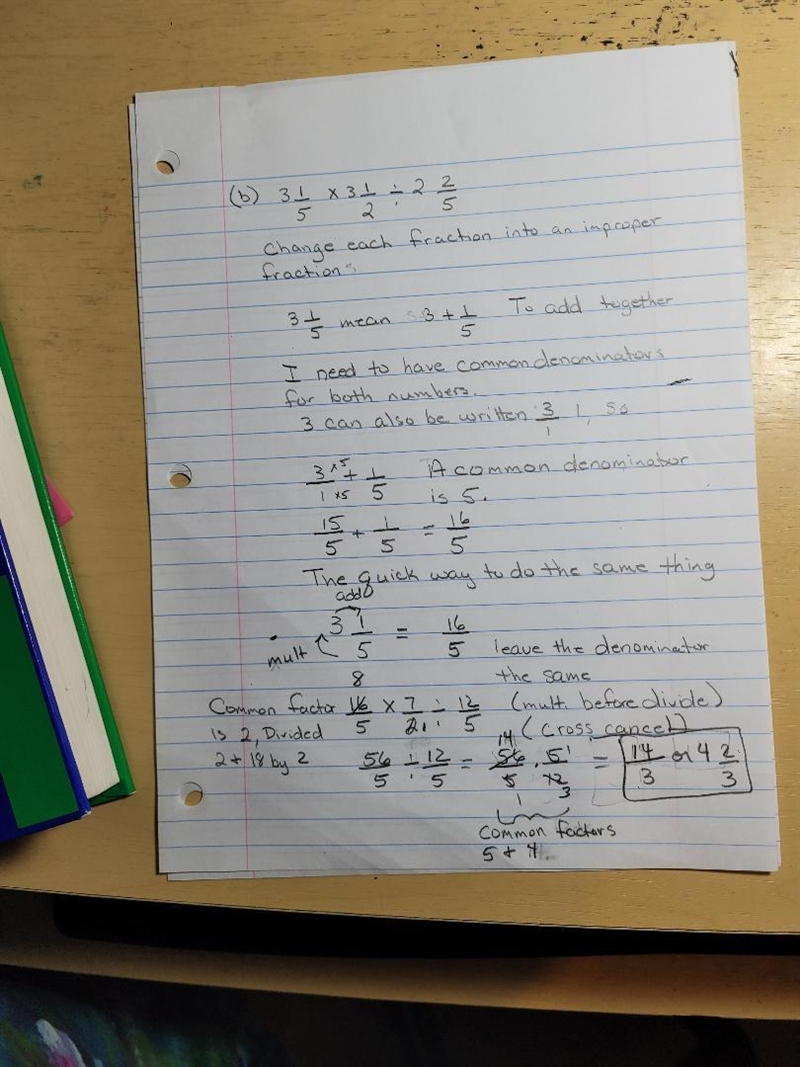 (b) 3 1/5 × 3 1/2 ÷ 2 2/5
Change each fraction into an improper
fraction.
3 1/5 mean 3 + 1/5 To add together
I need to have common denominators
for both numbers.
3 can also be written 3/1, so
3/1 ×5/×5 + 1/5 A common denominator
is 5.
15/5 + 1/5 = 16/5
The quick way to do the same thing
add
3 1/5 = 16/5 leave the denominator
mult the same
8
Common factor 16/5 × 7/2 1 ÷ 12/5 (mult. before divide)
is 2, Divided (cross cancel)
2 + 18 by 2 56/5 ÷ 12/5 = 56/5 · 5/12 = 14/3 or 4 2/3
14 1
1 3
Common factors
5 + 4.